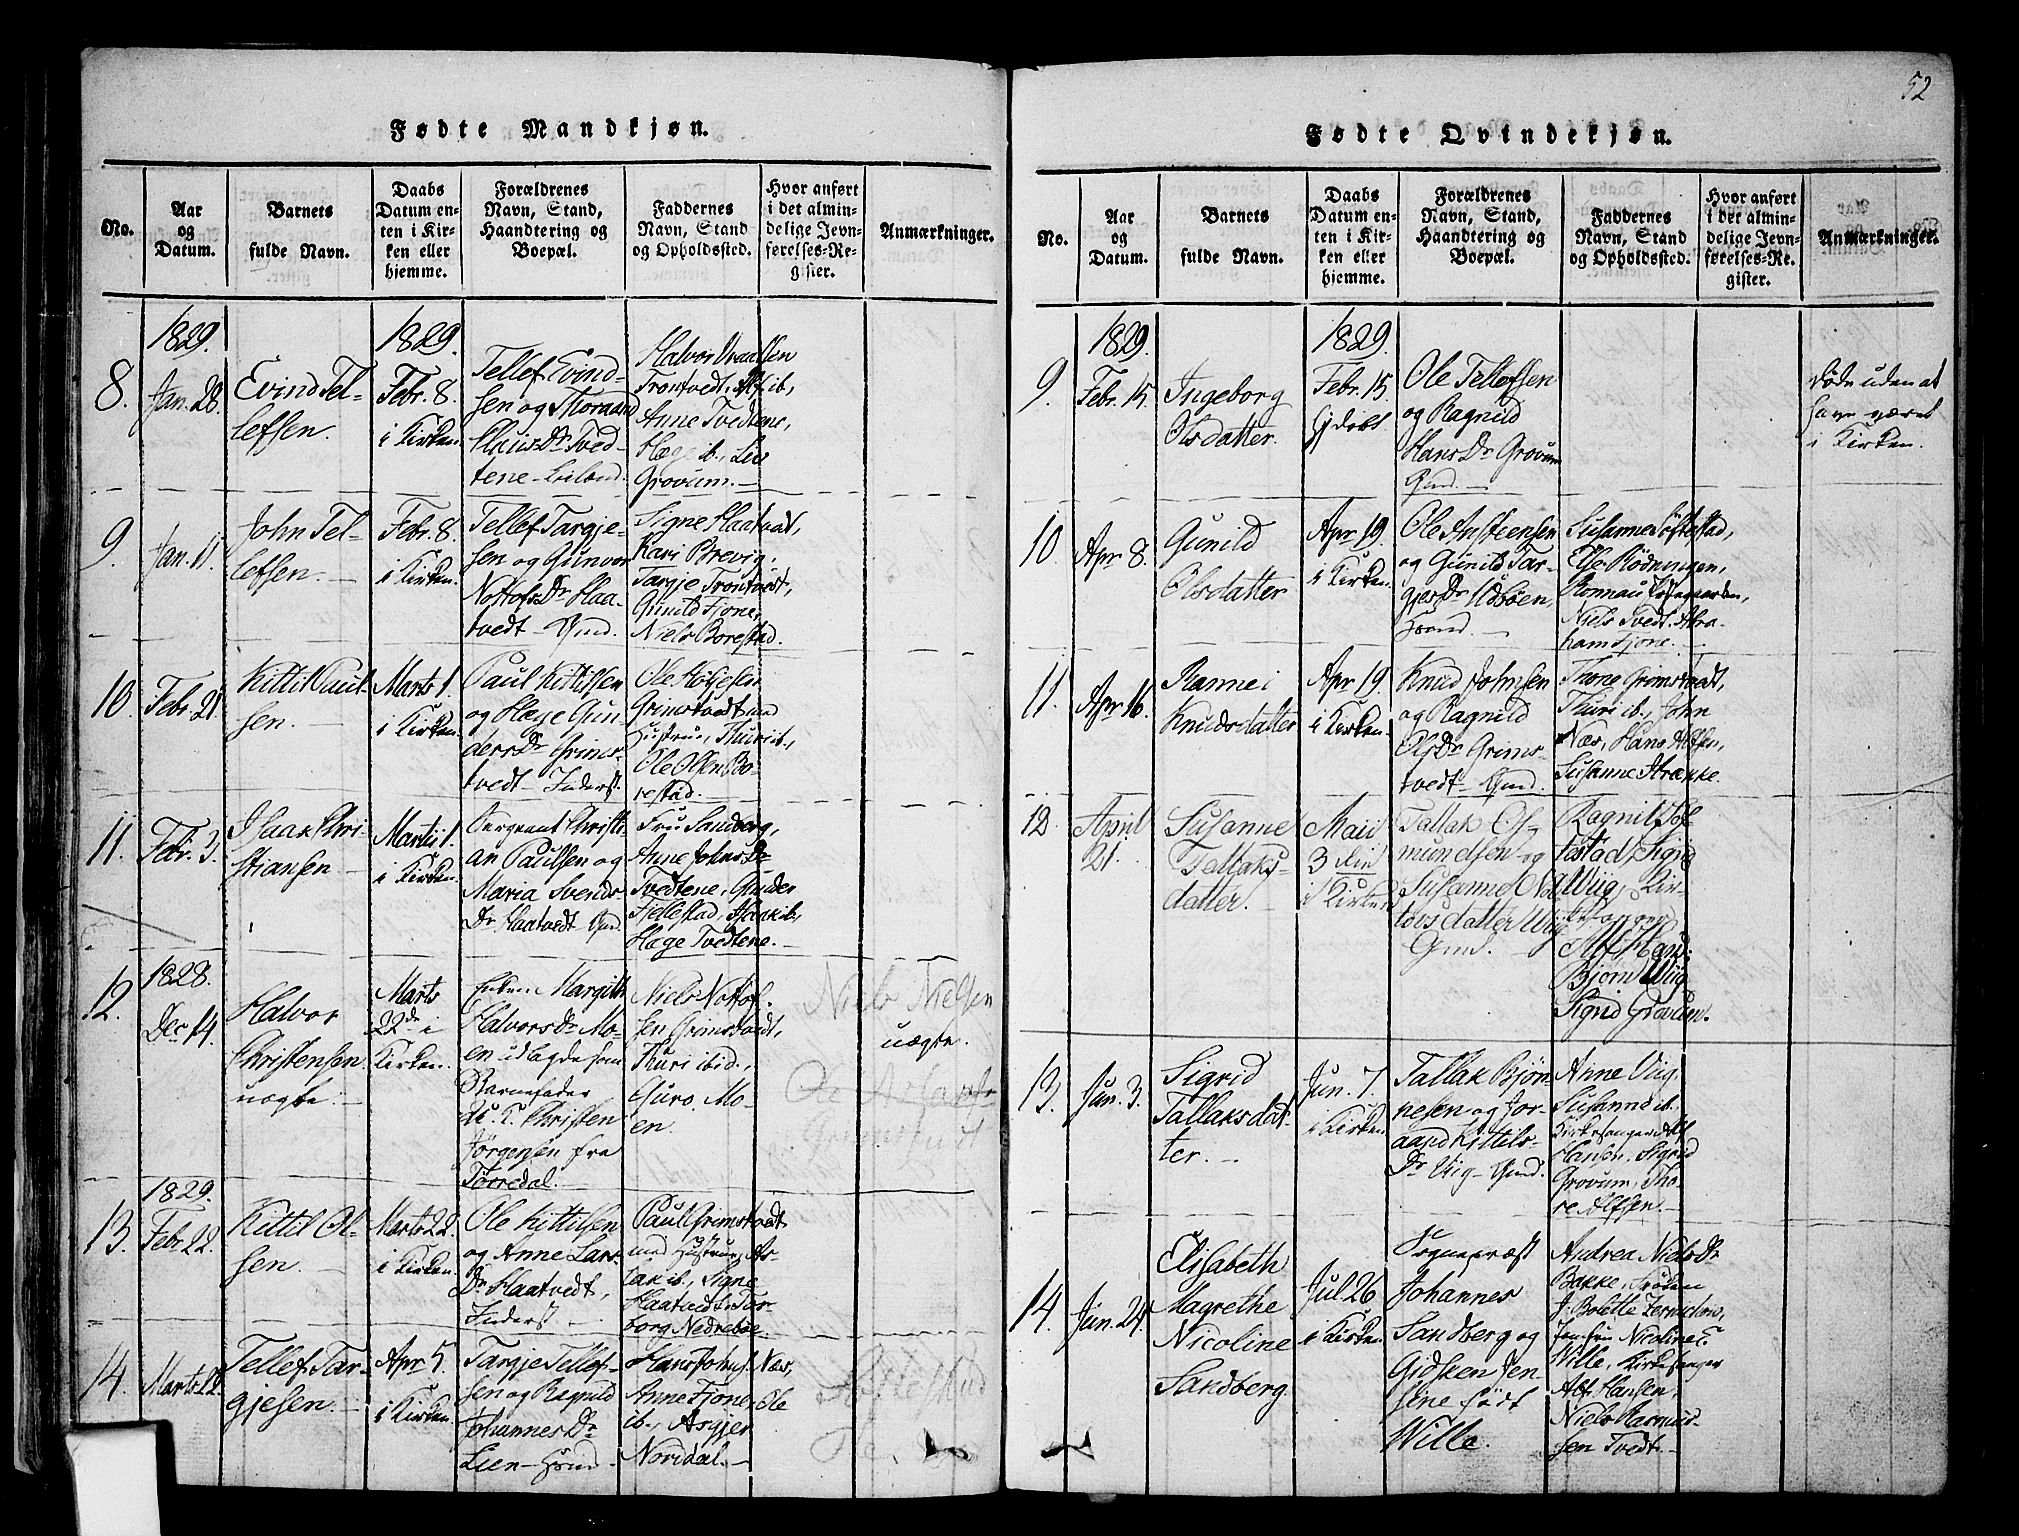 52
Fødte Mandkjøn.
No.
Aar
og
Datum.
Barnets
fulde Navn.
Daabs
Datum en-
ten i Kir-
ken eller
hjemme.
Forældrenes
Navn, Stand,
Haandtering og
Boepæl.
Faddernes
Navn, Stand
og Opholdssted.
Hvor anført
i det almin-
delige Jevn-
førelses-Re-
gister.
Anmærkninger.
8.
1829.
Jan. 28.
Evind Tel-
lefsen.
1829.
Febr. 8.
i Kirken.
Tellef Evind-
sen og Thoraand
Dr. Tved-
tene
Halvor
Trontvedt, ib.,
Anne Tvedtene,
Hæge ib., Liv
Grovum.
9.
Jan. 11.
John Tel-
lefsen.
Febr. 8.
i Kirken.
Tellef Targje-
sen og Gunvor
Nottofs Dr. Haa-
tvedt
Signe Haatvedt,
Kari Brevig,
Targje Trontvedt,
Gunild Fjone,
Niels Borestad.
10.
Febr. 21.
Kittil Paul-
sen.
Marts 1.
i Kirken.
Paul Kittilsen
og Hæge Gun-
ders Dr. Grims-
tvedt Inderst.
Ole Holjesen
Grimstvedt med
Hustrue, Thuri ib.,
Ole Olsen Bo-
restad.
11.
Febr. 3.
Isaak Chri-
stiansen
Martii 1.
i Kirken.
Sergeant Christi-
an Paulsen og
Maria Svends
Dr. Haatvedt
Fru Sandberg,
Anne Johns Dr.
Tvedtene, Gunder
Fjellestad, Isaak ib.,
Hæge Tvedtene.
12.
1828.
Dec. 14.
Halvor
Christensen
uægte.
Marts
22de i
Kirken.
Margith
Halvors Dr. Mo-
en udlagde som
Barnefader
U. K. Christen
Jørgensen fra
Tørredal.
Niels Nottof-
sen Grimstvedt,
Thuri ibid.,
Guro Mo-
en.
Niels Nielsen
uægte.
13.
1829.
Febr. 22.
Kittil Ol-
sen.
Marts 22.
i Kirken.
Ole Kittilsen
og Anne Lars
Dr. Haatvedt,
Inderst
Paul Grimstvedt
med Hustrue, As-
lak ib., Signe
Haatvedt, Tar-
borg Nedrebøe.
14.
Marts 22.
Tellef Tar-
gjesen.
Apr. 5.
i Kirken.
Targje Tellef-
sen og Ragnild
Johannes Dr.
Lien
Hans Johnsen Næs,
Anne Fjone, Ole
ib., Asgjer
Nordal.
Fødte Qvindekjøn.
No.
Aar
og
Datum.
Barnets
fulde Navn.
Daabs
Datum en-
ten i Kir-
ken eller
hjemme.
Forældrenes
Navn, Stand,
Haandtering og
Boepæl.
Faddernes
Navn, Stand
og Opholdssted.
Hvor anført
i det almin-
delige Jevn-
førelses-Re-
gister.
Anmærkninger.
9.
1829.
Febr. 15.
Ingeborg
Olsdatter.
1829.
Febr. 15.
Hj. døbt
Ole Tellefsen
og Ragnild
Hans Dr. Grovum
Døde uden at
have været
i Kirken.
10.
Apr. 8.
Gunild
Olsdatter
Apr. 19.
i Kirken.
Ole Ansteensen
og Gunild Tar-
gjes Dr. Udbøen,
Susanne Søftestad,
Else Rødningen,
Niels Tvedt, Abra-
ham Fjone.
11.
Apr. 16.
Rannei
Knudsdatter
Apr. 19.
i Kirken.
Knud Johnsen
og Ragnild
Ols Dr. Grims-
tvedt
Thone Grimstvedt,
Thuri ib., John
Næs, Hans Alfsen,
Susanne Strække.
12
April
21.
Susanne
Tallaks-
datter.
Maii
3 die
i Kirken
Tallak Os-
mundsen og
Susanne Not-
tovsdatter Wiig
Ragnil Søf-
testad, Sigrid
Wiig, Kir-
kesanger
Alf Hans:
Bjørn Wiig
Sigrid Grovum.
13.
Jun. 3.
Sigrid
Tallaksdat-
ter.
Jun. 7.
i Kirken
Tallak Bjør-
nesen og Jor-
aand Kittils-
Dr. Viig
Anne Viig,
Susanne ib.
Kirkesanger Alf
Hansen, Sigrid
Grovum, Tho-
re Alfsen.
14.
Jun. 24.
Elisabeth
Magrethe
Nicoline
Sandberg.
Jul. 26
i Kirken.
Sognepræst
Johannes
Sandberg og
Gidsken Jen-
sine født
Wille.
Andrea Niels Dr.
Bakke, Frøken
J. Bolette Zernichow,
Jomfru Nicoline F.
Wille, Kirkesanger
Alf Hansen,
Niels Rasmus-
sen Tvedt.